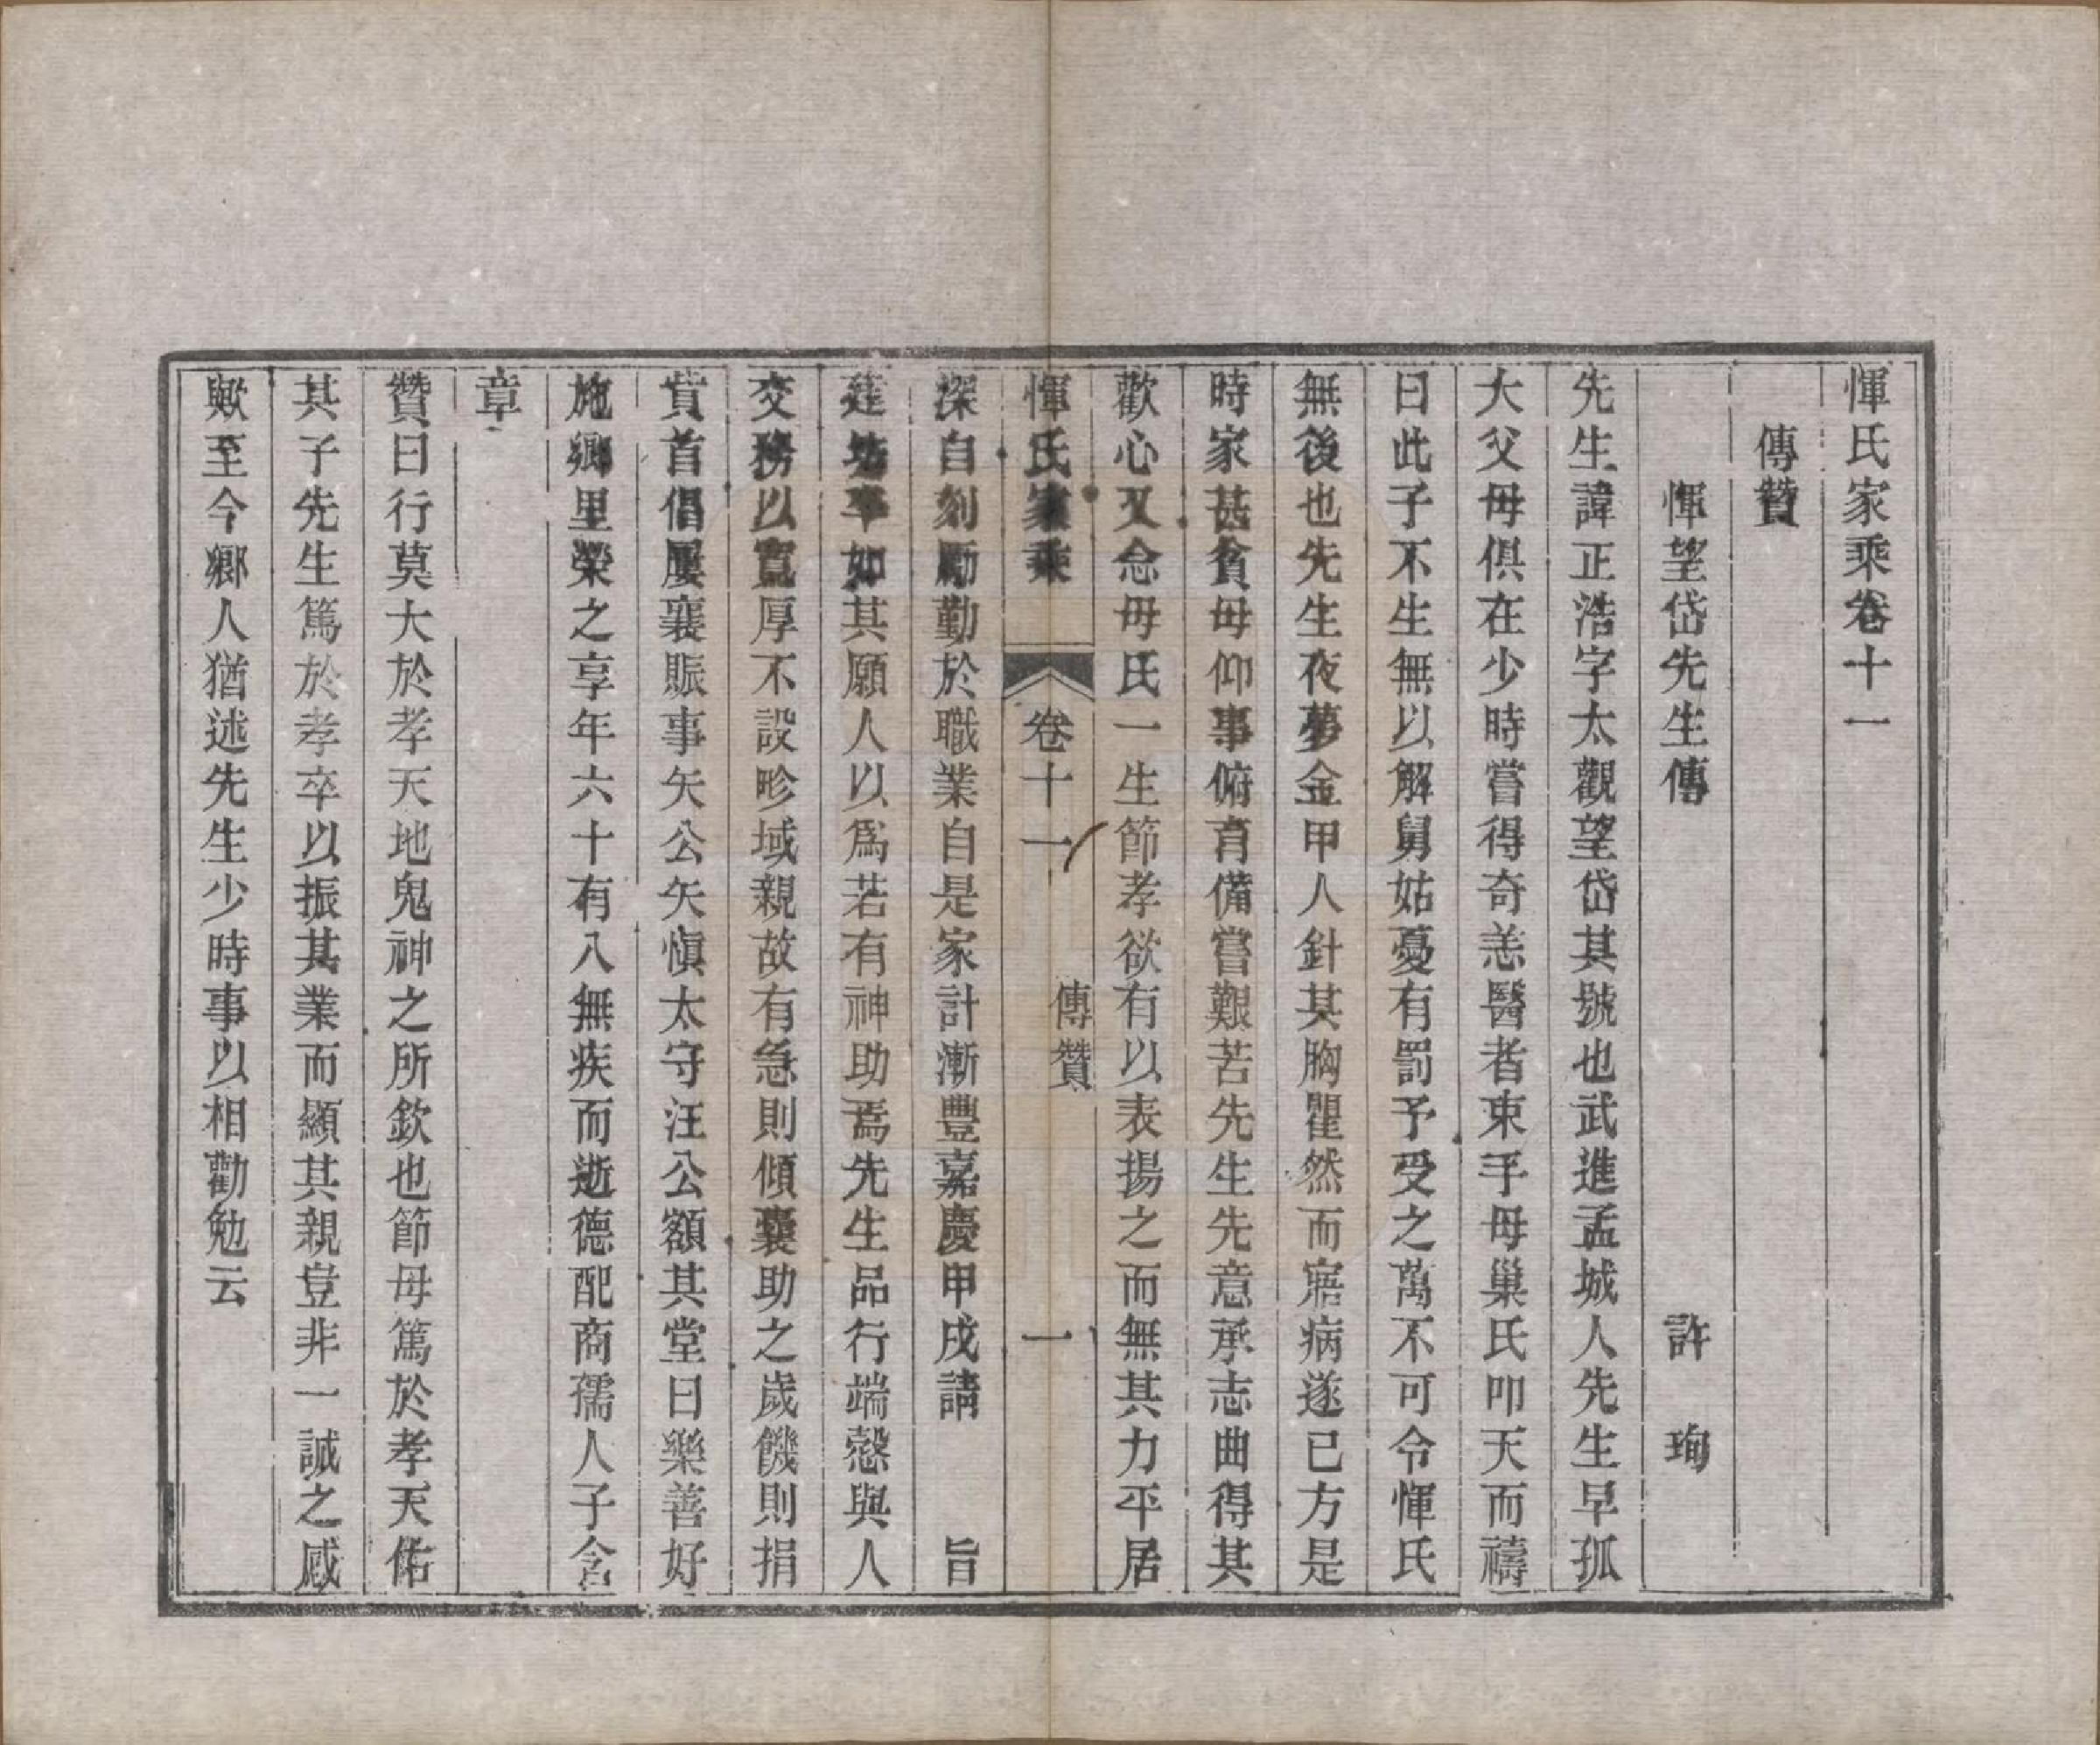 惲氏家乘卷十一
傳贊
惲望岱先生傳 許 珣
先生諱正浩字太觀望岱其號也武進孟城人先生早孤
大父母俱在少時嘗得奇恙醫者束手母巢氏叩天而禱
曰此子不生無以解舅姑憂有罰予受之萬不可令惲氏
無後也先生夜夢金甲人針其胸瞿然而寤病遂已方是
時家甚貧母仰事俯育備嘗艱苦先生先意承志曲得其
歡心又念母氏一生節孝欲有以表揚之而無其力平居
惲氏家乘 卷十一 傳贊 一
深自刻勵勤於職業自是家計漸豐嘉慶甲戌請 旨
建坊卒如其願人以爲若有神助焉先生品行端愨與人
交務以寬厚不設畛域親故有急則傾囊助之歲饑則捐
貲首倡屢襄賑事矢公矢愼太守汪公額其堂曰樂善好
施鄉里榮之享年六十有八無疾而逝德配商孺人子含
章
贊曰行莫大於孝天地鬼神之所欽也節母篤於孝天佑
其子先生篤於孝卒以振其業而顯其親豈非一誠之感
歟至今鄉人猶述先生少時事以相勸勉云